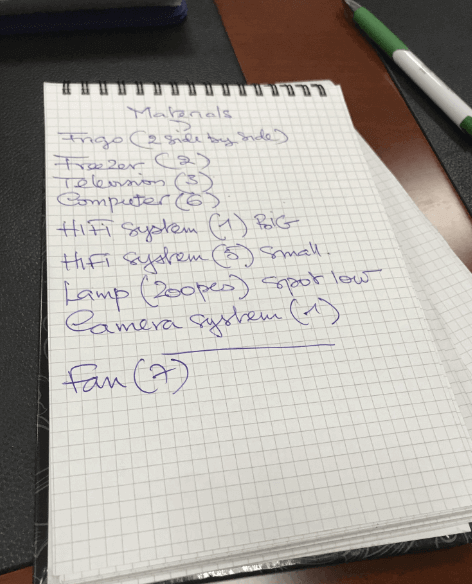 Materials
Frigo (2 side by side)
Freezer (2)
Television (3)
Computer (6)
HiFi system (1) BIG
HiFi system (5) small.
Lamp (200pcs) spot low
Camera system (1)
Fan (7)